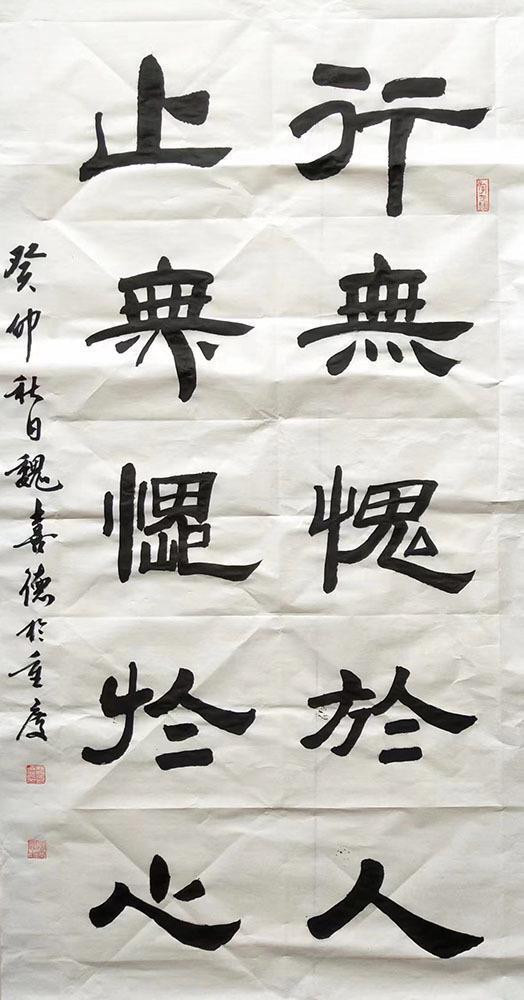 行無愧於人
止無於心
癸卯秋日魏喜德於重慶